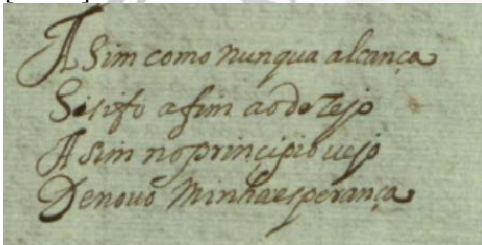 Asim como nunqua alcança
Sisifo a fim ao dezejo
Asim no principio vejo
De novo minha esperança